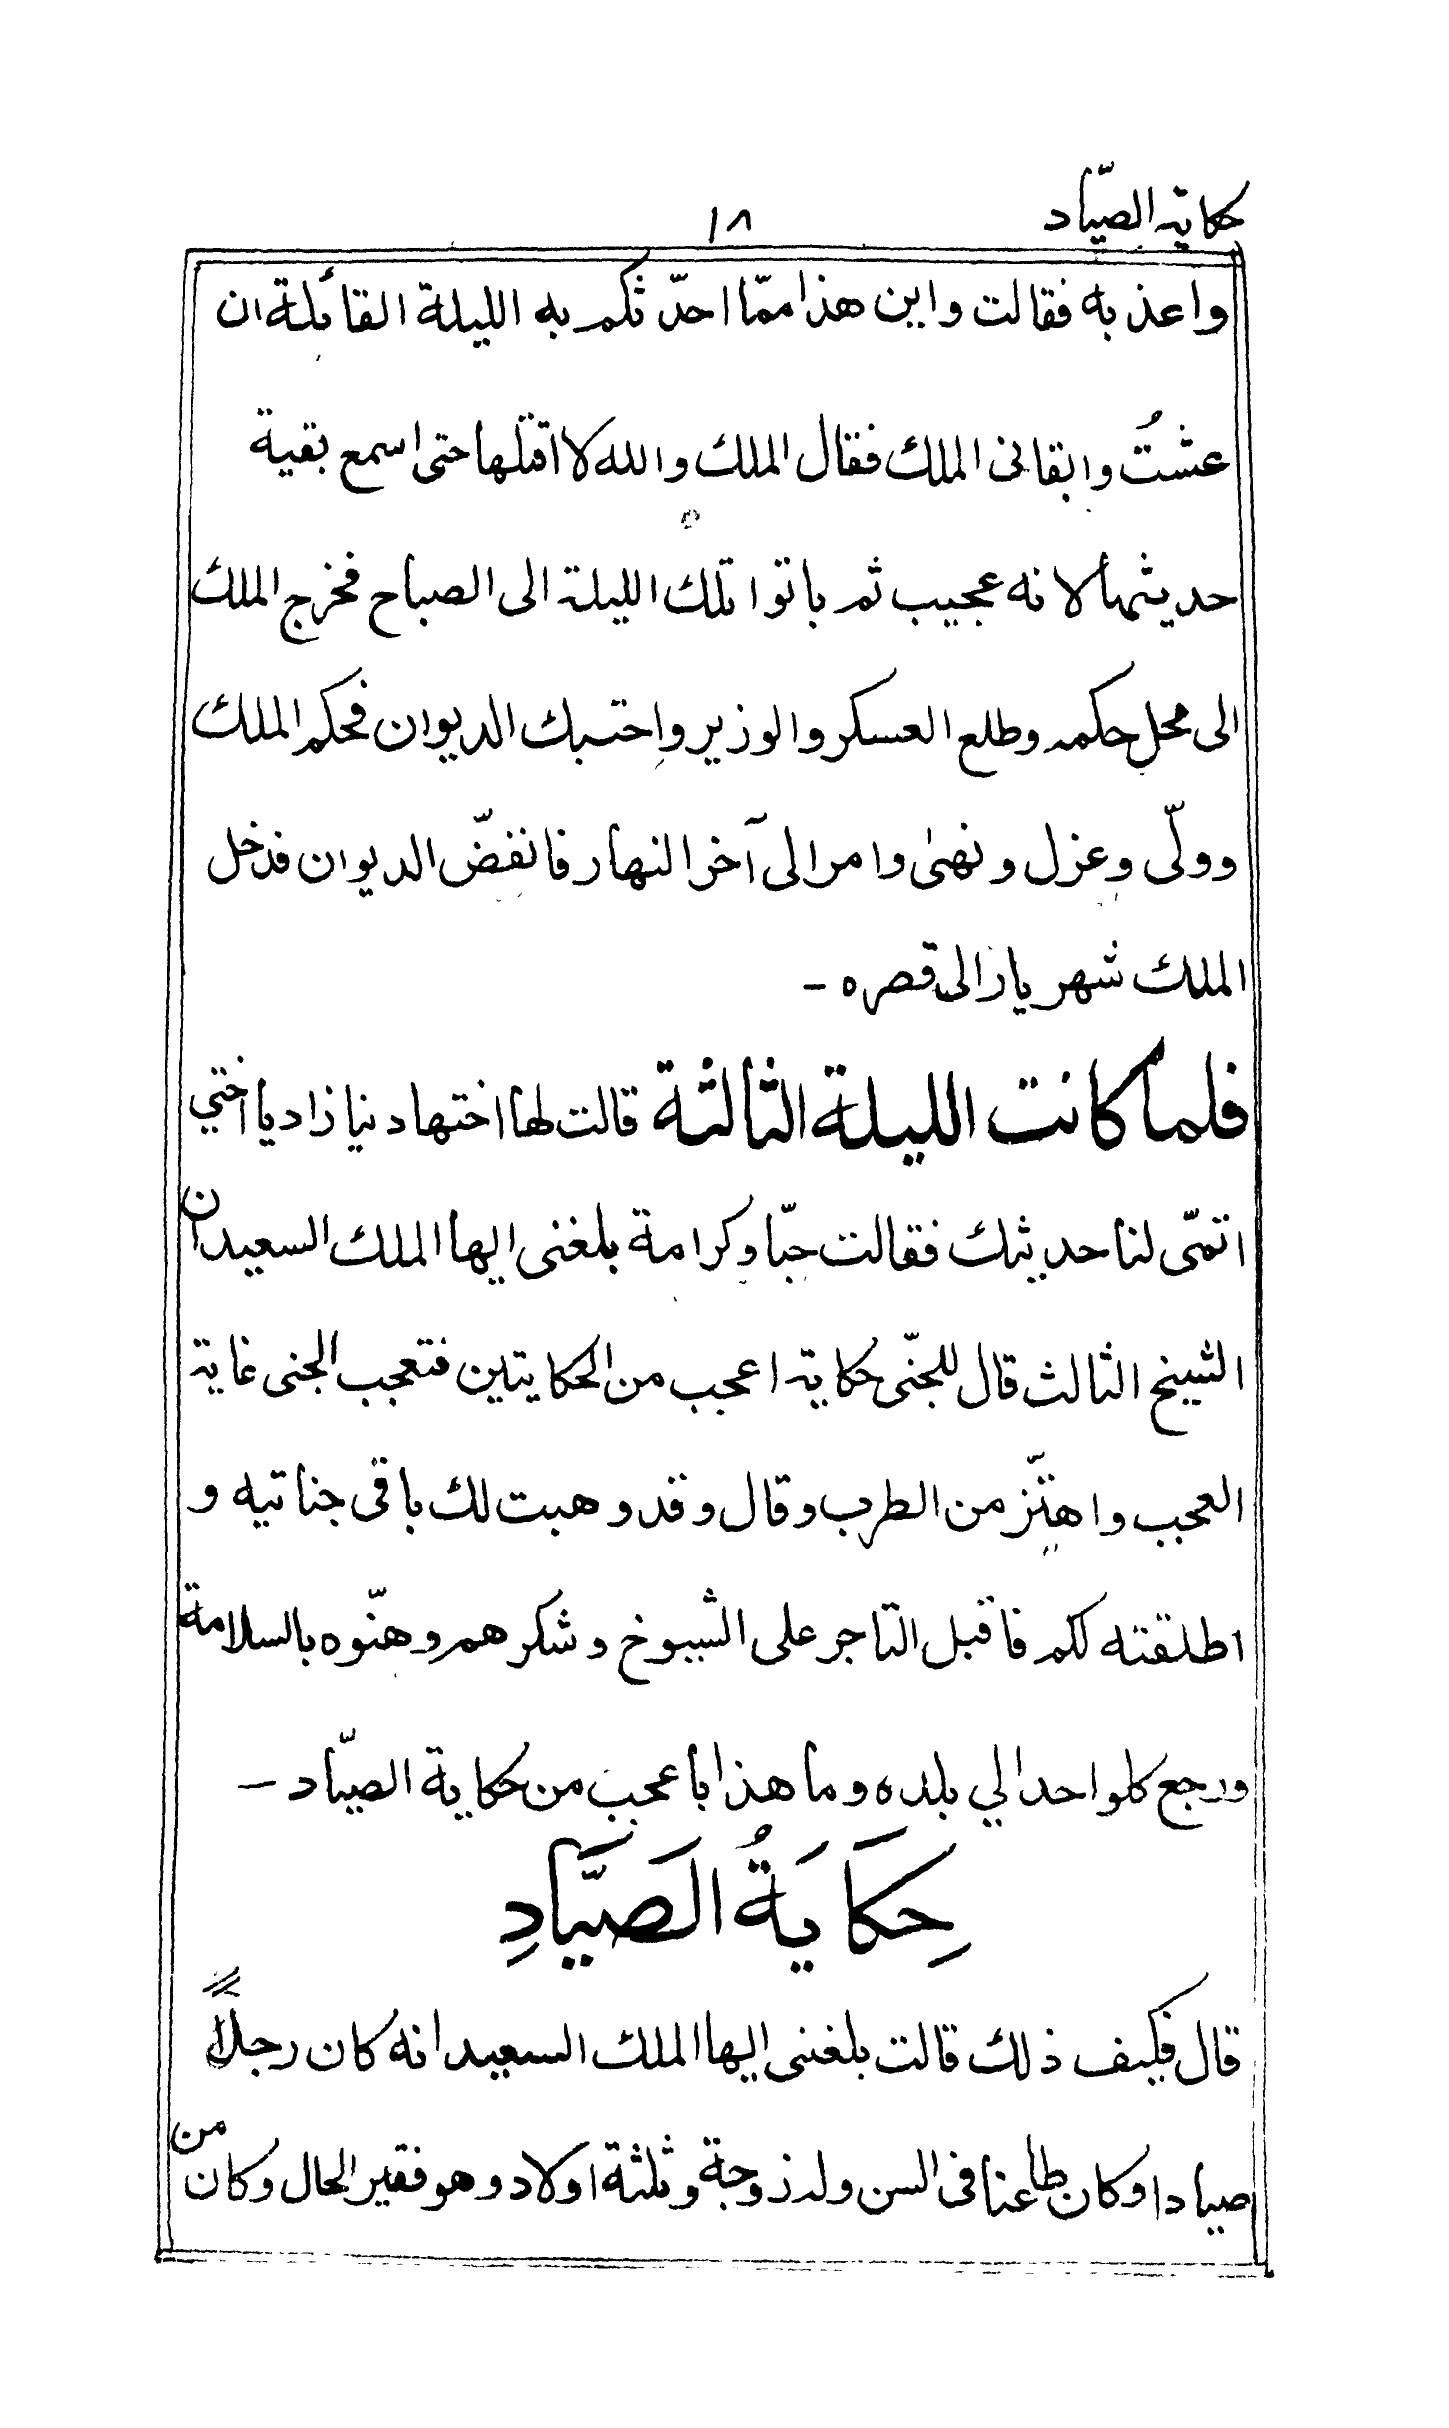 حكاية الصيّاد
١٨
واعذبه فقالت واين هذا ممّا احدّثكم به الليلة القائلة ان
عشتُ وابقانى الملك فقال الملك والله لا اقتلها حتى اسمع بقية
حديثها لانه عجيب ثم باتوا تلك الليلة الى الصباح فخرج الملك
الى محل حكمه وطلع العسكر والوزير واحتبك الديوان فحكم الملك
وولّى وعزل ونهىٰ وامر الى آخر النهار فانفضّ الديوان فدخل
الملك شهريار الى قصره -
فلما كانت الليلة الثالثة قالت لها اختها دنيازاد يا اختي
اتمّى لنا حديثك فقالت حبّا وكرامة بلغنى ايها الملك السعيد ان
الشيخ الثالث قال للجنّى حكاية اعجب من الحكايتين فتعجب الجنى غاية
العجب واهتّز من الطرب وقال وقد وهبت لك باقى جناتيه و
اطلقته لكم فاقبل التاجر على الشيوخ وشكرهم وهنّوه بالسلامة
ورجع كلواحد الي بلده وما هذا باعجب من حكاية الصيّاد -
حِكَايَةُ الصَيَّادِ
قال فكيف ذلك قالت بلغنى ايها الملك السعيد انه كان رجلاً
صيادا وكان طاعنا فى السن وله زوجة وثلثة اولاد وهو فقير الحال وكان من